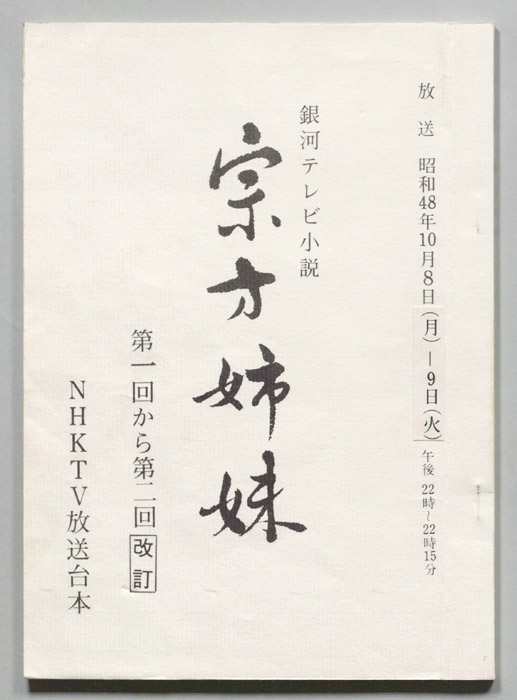 放送 昭和48年10月8日(月)―9日(火)午後22時~22時15分
銀河テレビ小説
宗方姉妹
第一回から第二回 改訂
NHKTV放送台本